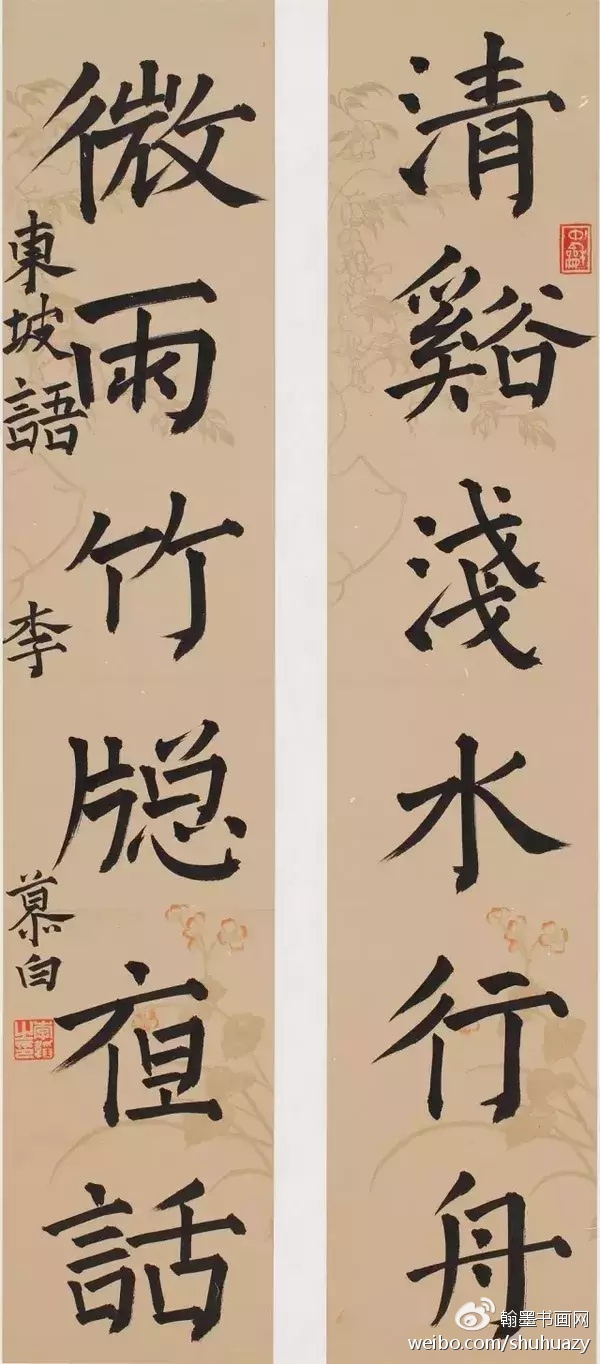 清谿淺水行舟
微雨竹牕亱話
東坡語 李慕白
翰墨书画网
weibo.com/shuhuazy